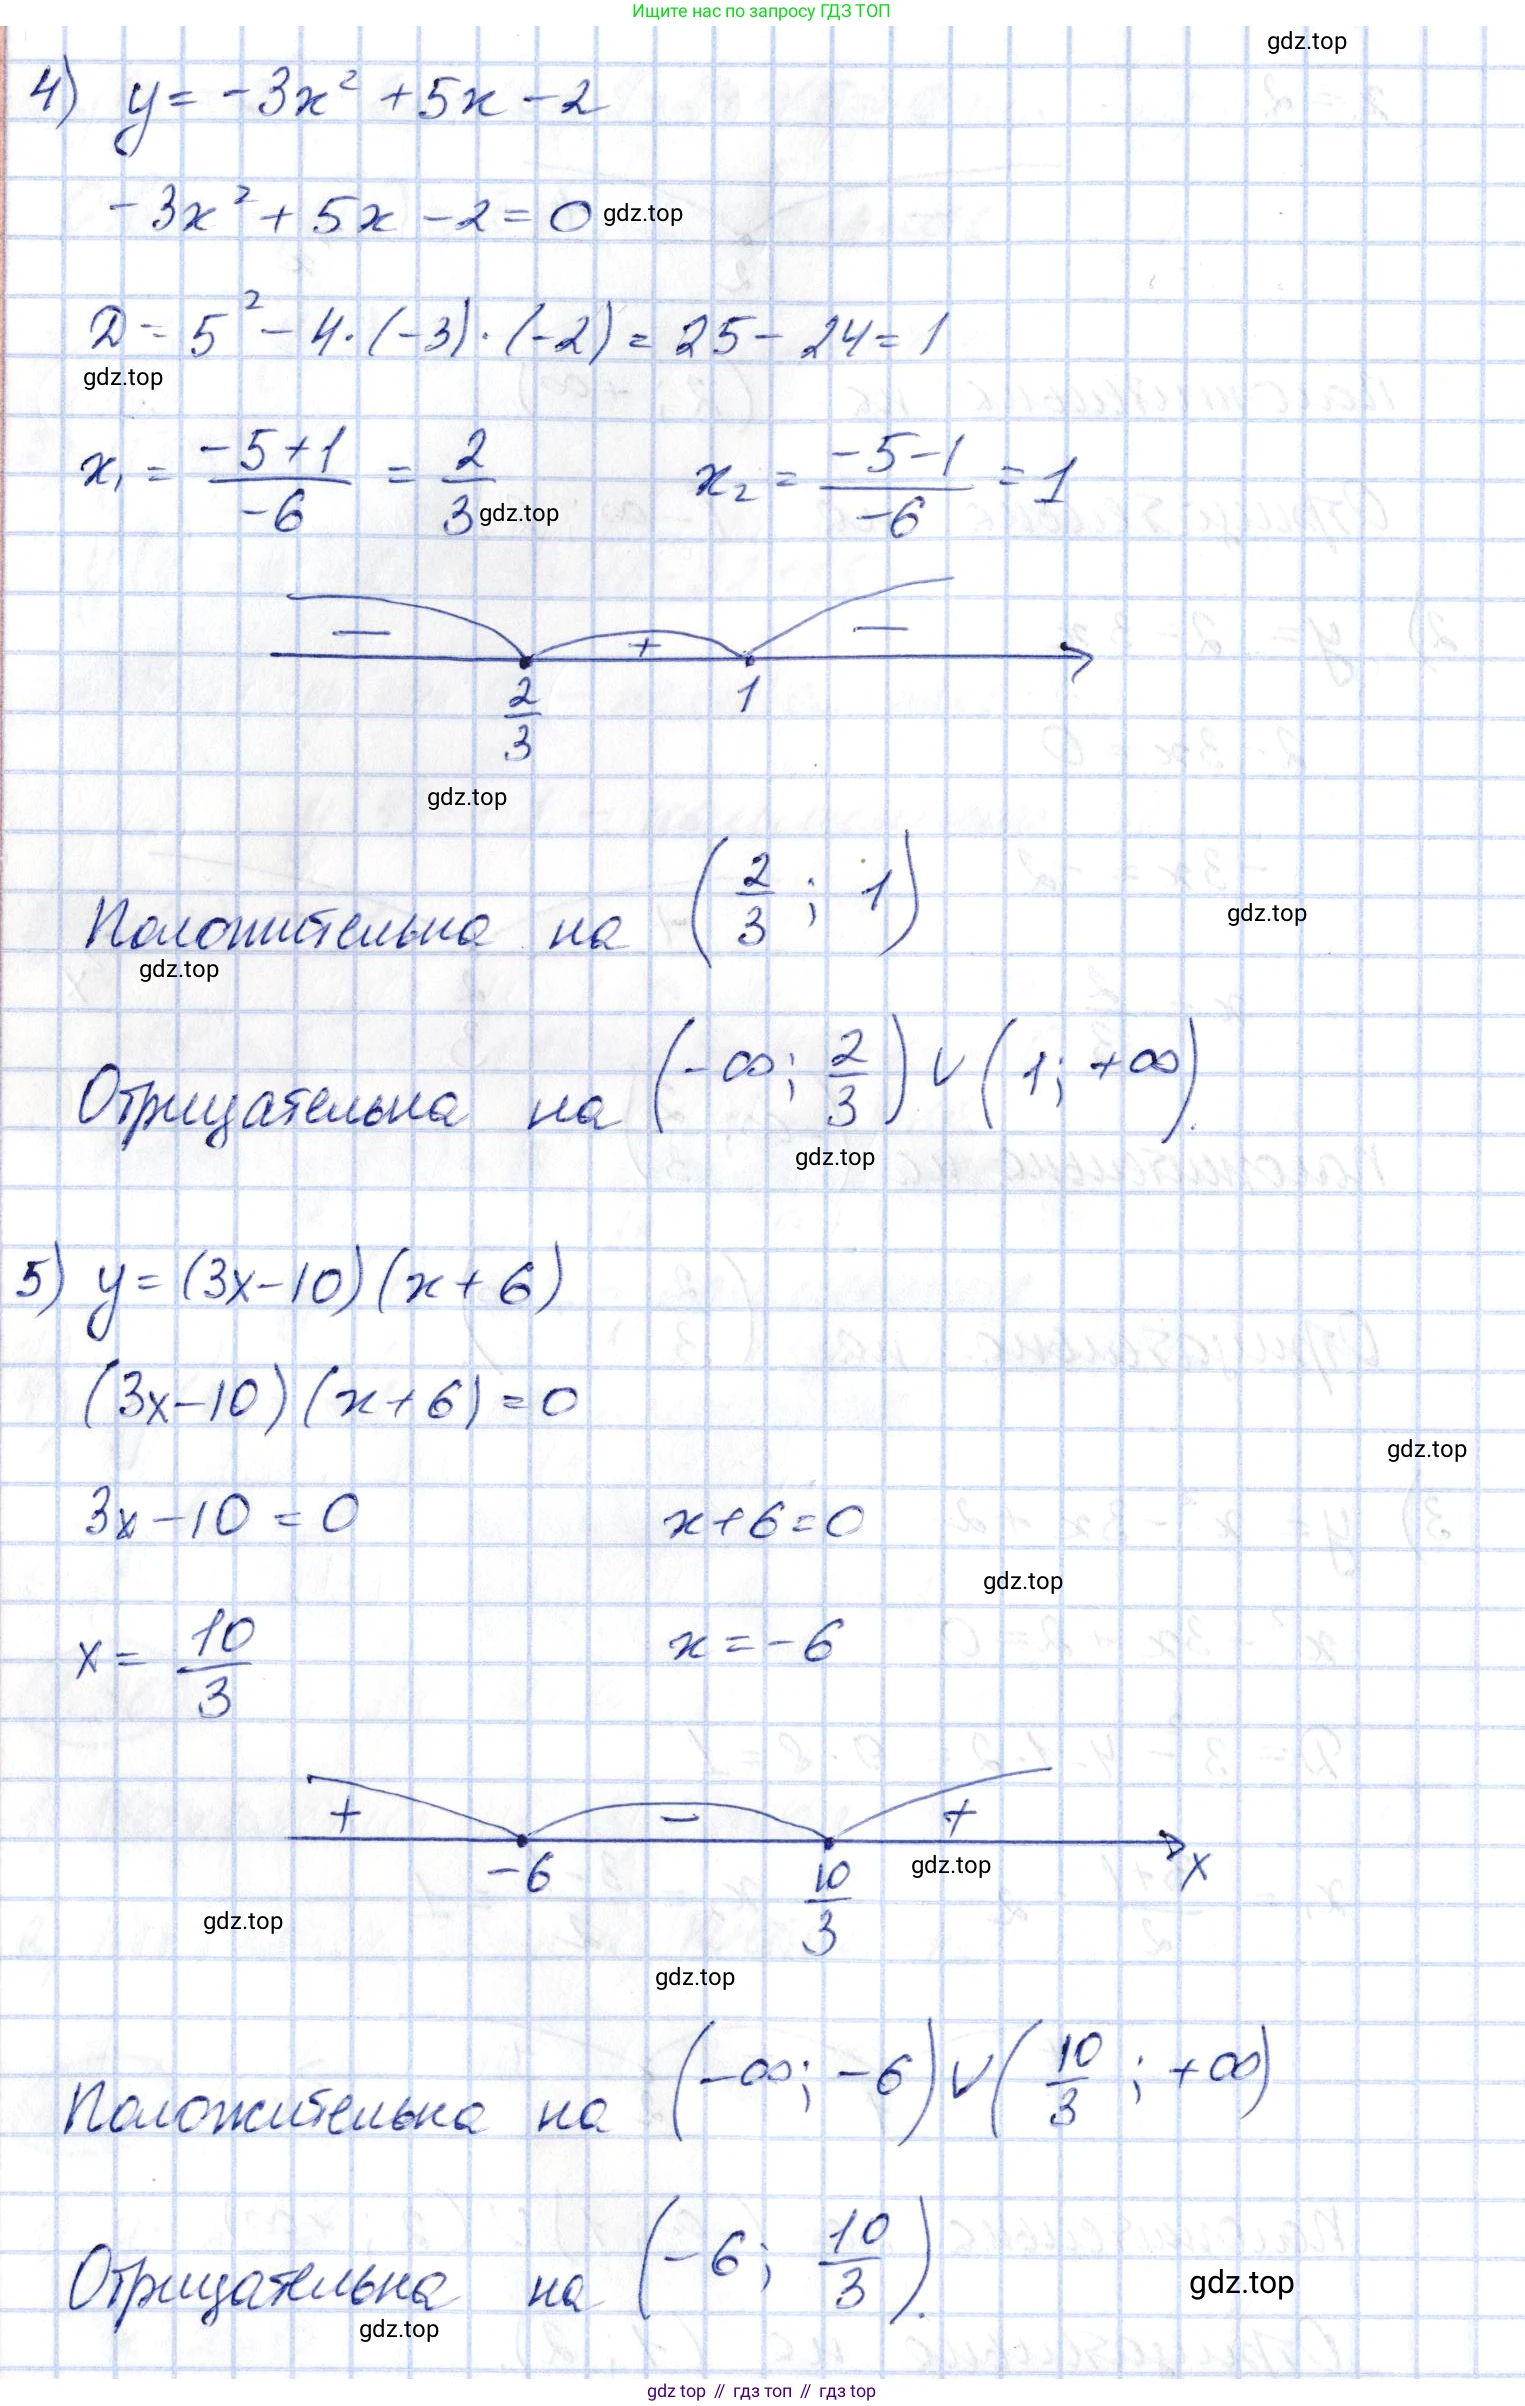 Ищите нас по запросу ГДЗ ТОП
gdz.top
4) y = -3x² + 5x - 2
-3x² + 5x - 2 = 0 gdz.top
D = 5² - 4 · (-3) · (-2) = 25 - 24 = 1
gdz.top
x₁ = (-5+1)/(-6) = 2/3 gdz.top x₂ = (-5-1)/(-6) = 1
− + −
2/3 1
gdz.top
Положительна на (2/3; 1)
gdz.top
gdz.top
Отрицательна на (-∞; 2/3) ∪ (1; +∞).
gdz.top
5) y = (3x-10)(x+6)
(3x-10)(x+6) = 0
gdz.top
3x-10 = 0 x+6=0
gdz.top
x = 10/3 x = -6
+ − +
-6 10/3 gdz.top x
gdz.top
gdz.top
Положительна на (-∞; -6) ∪ (10/3; +∞)
Отрицательна на (-6; 10/3).
gdz.top
gdz.top
gdz top // гдз топ // гдз top